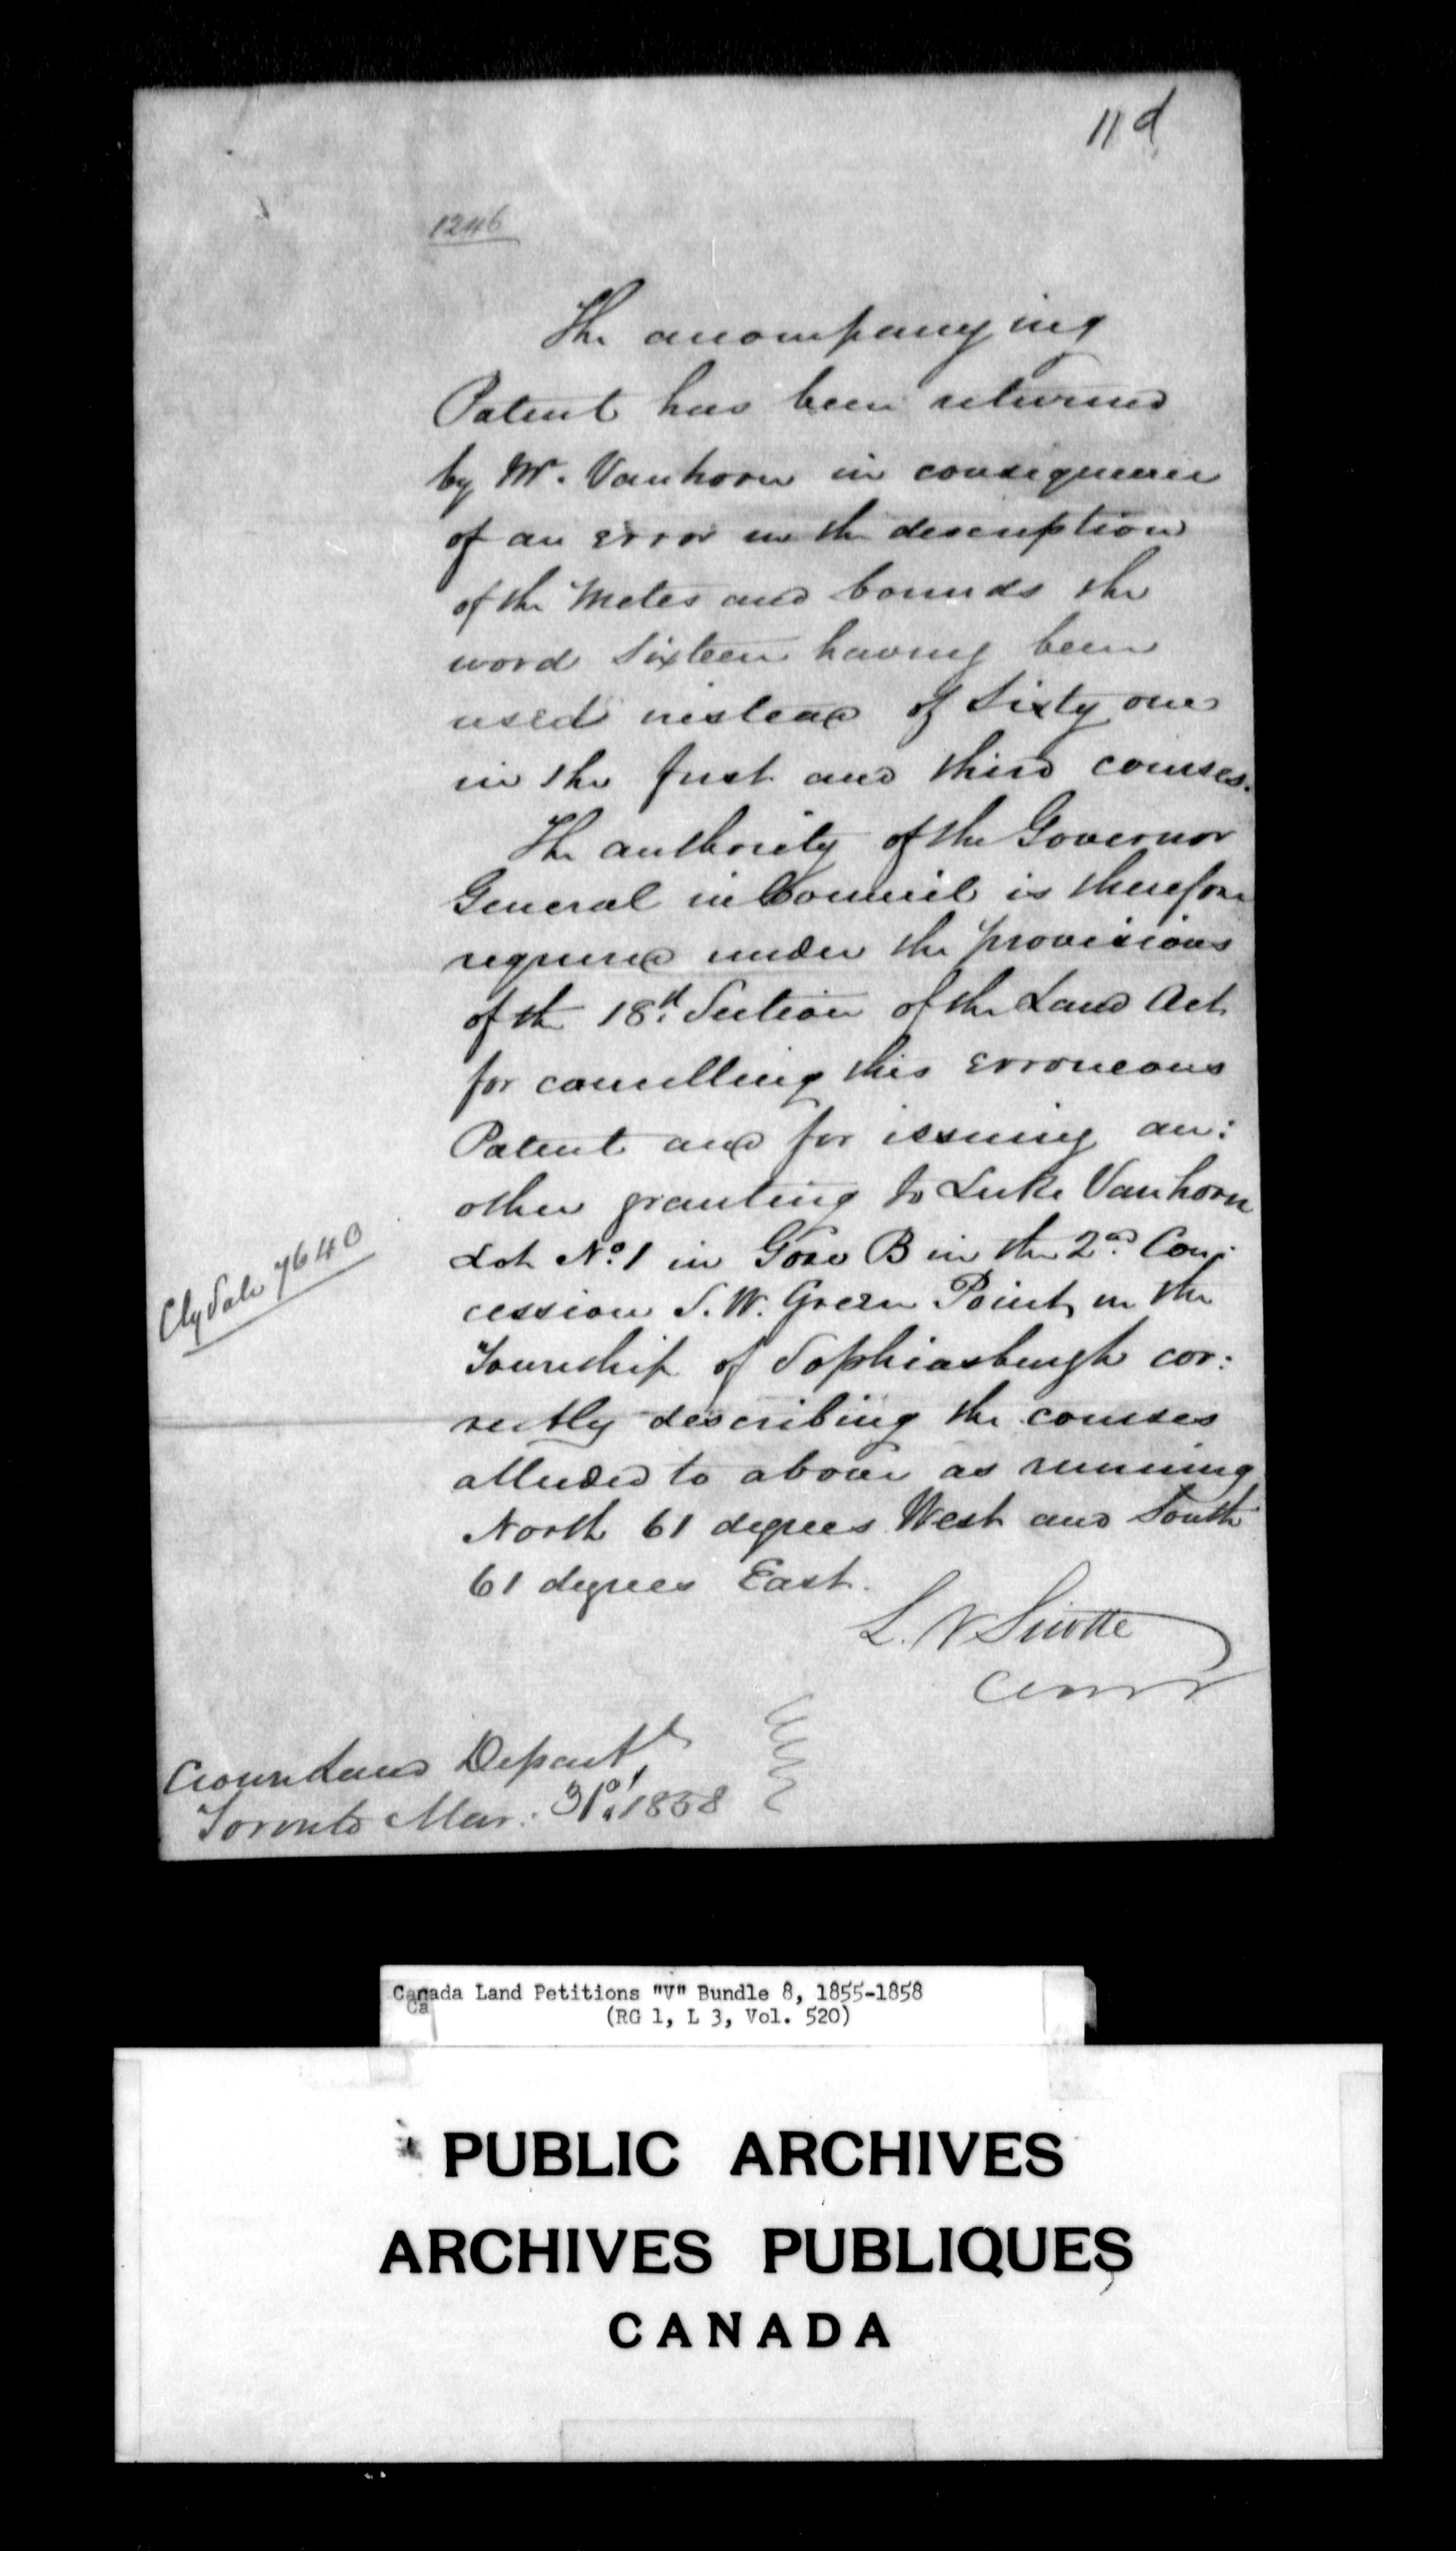 11d
1246
The accompanying
Patent has been returned
by Mr. Vanhorn in consequence
of an error in the description
of the Metes and bounds the
word Sixteen having been
used instead of Sixty one
in the first and third courses.
The authority of the Governor
General in Council is therefore
required under the provisions
of the 18th. Section of the Land Act
for cancelling this erroneous
Patent and for issuing an:
other granting to Luke Vanhorn
Lot No. 1 in Gore B in the 2nd. Con:
cession S. W. Green Point, in the
Township of Sophiasburgh cor:
rectly describing the courses
alluded to above as running
North 61 degrees West and South
61 degrees East.
L. V Sicotte
Clydale 7640
Crown Lands Departt.
Toronto Mar: 31st. 1858
Canada Land Petitions "V" Bundle 8, 1855-1858
Ca
(RG 1, L 3, Vol. 520)
PUBLIC ARCHIVES
ARCHIVES PUBLIQUES
CANADA